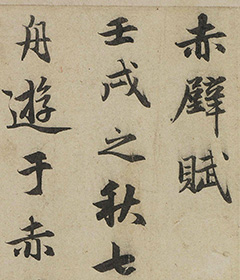 赤壁賦
壬戌之秋七
舟遊于赤